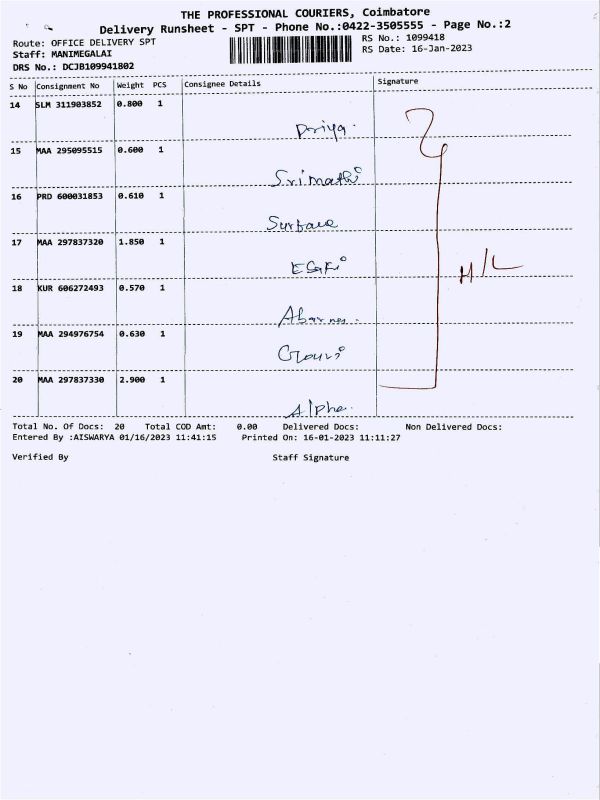 THE PROFESSIONAL COURIERS, Coimbatore
Delivery Runsheet - SPT - Phone No.:0422-3505555 - Page No.:2
Route: OFFICE DELIVERY SPT
RS No.: 1099418
Staff: MANIMEGALAI
RS Date: 16-Jan-2023
DRS No.: DCJB109941802
S No Consignment No Weight PCS Consignee Details Signature
14 SLM 311903852 0.800 1
Priya.
15 MAA 295095515 0.600 1
Srimathi
16 PRD 600031853 0.610 1
Surface
17 MAA 297837320 1.850 1
Esakki
18 KUR 606272493 0.570 1
19 MAA 294976754 0.630 1
Gowri
20 MAA 297837330 2.900 1
Alpha.
H/L
Total No. Of Docs: 20 Total COD Amt: 0.00 Delivered Docs: Non Delivered Docs:
Entered By :AISWARYA 01/16/2023 11:41:15 Printed On: 16-01-2023 11:11:27
Verified By Staff Signature